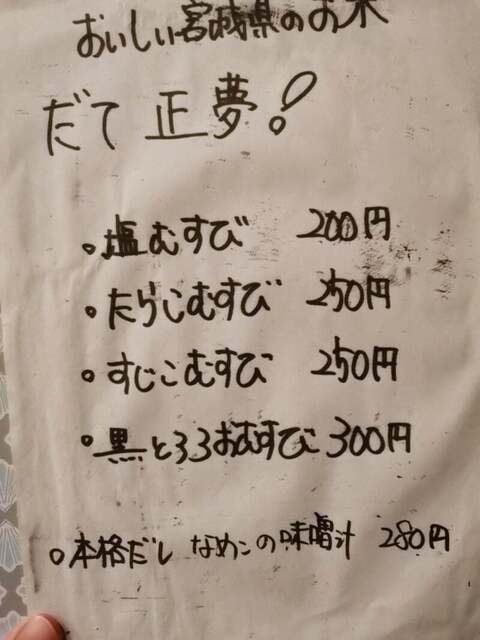 おいしい宮城県のお米
だて正夢!
。塩むすび 200円
。たらこむすび 250円
。すじこむすび 250円
。黒とろろおむすび 300円
。本格だし なめこの味噌汁 280円